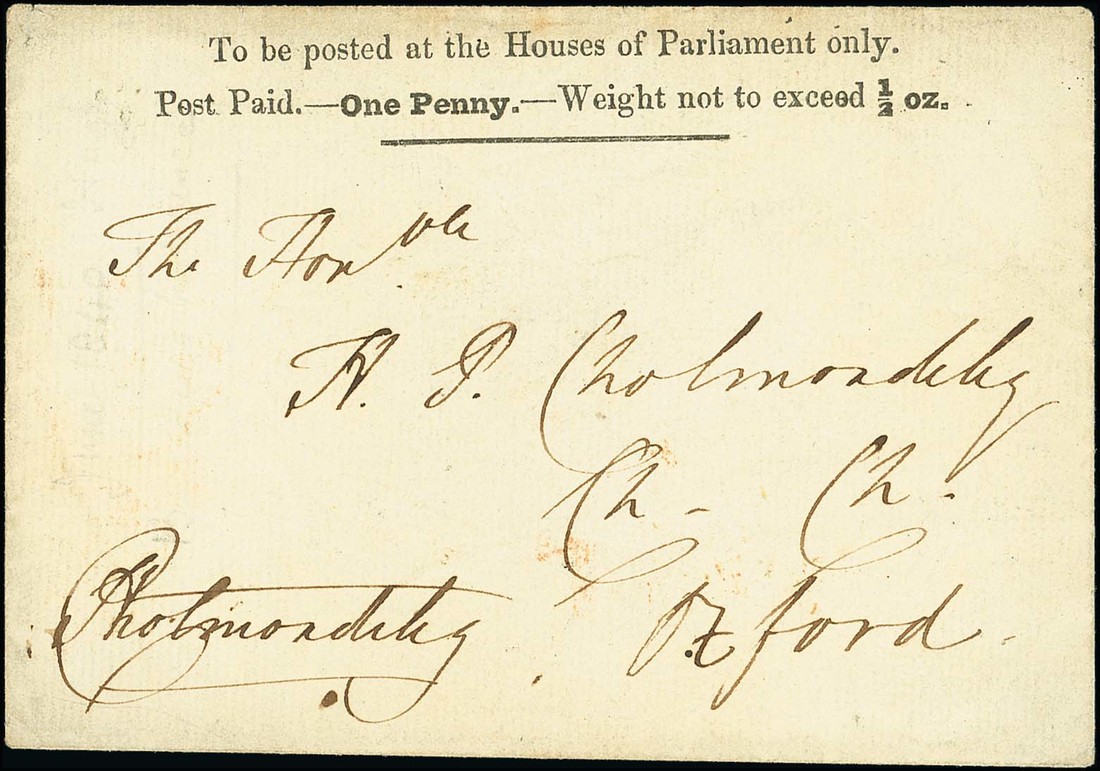 To be posted at the Houses of Parliament only.
Post Paid.—One Penny.—Weight not to exceed ½ oz.
The Honble
H. P. Cholmondeley
Ch. Ch.
Oxford.
Cholmondeley